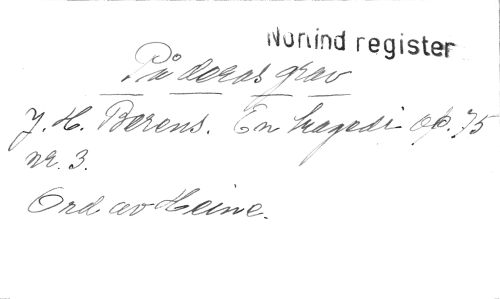 Norind register
På deras grav
J. H. Berens. En tragedi op. 75
nr. 3.
Ord av Heine.